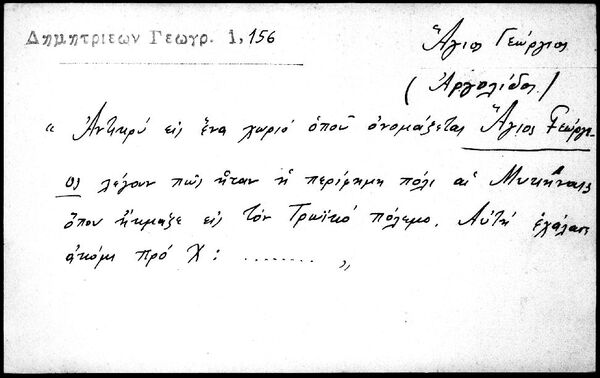 Δημητριεων Γεωγρ. 1, 156
Ἅγιος Γεώργιος
(Ἀργολίδος)
“ Ἀντικρύ εἰς ἕνα χωριό ὁποῦ ὀνομάζεται Ἅγιος Γεώργι-
ος λέγουν πῶς ἦταν ἡ περίφημη πόλι αἱ Μυκῆναις
ὅπου ἤκμαξε εἰς τὸν Τρωϊκό πόλεμο. Αὐτή ἐχάλασε
ἀκόμι πρό Χ: ........ „